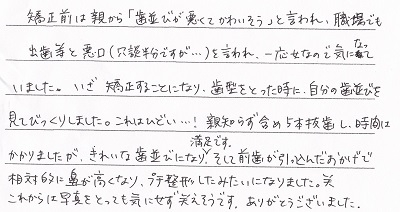 矯正前は親から「歯並びが悪くてかわいそう」と言われ、職場でも
出歯等と悪口(冗談半分ですが…)を言われ、一応女なので気になって
いました。いざ矯正することになり、歯型をとった時に、自分の歯並びを
見てびっくりしました。これはひどい…!親知らず含め5本抜歯し、時間は
かかりましたが、きれいな歯並びになり満足です。そして前歯が引っ込んだおかげで
相対的に鼻が高くなり、プチ整形したみたいになりました。笑
これからは写真をとっても気にせず笑えそうです。ありがとうございました。